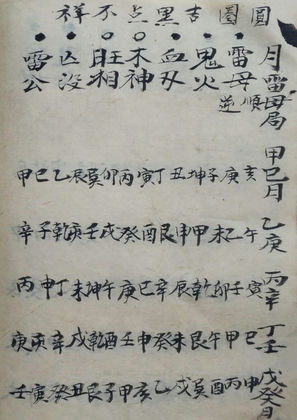 圓圈吉黑点不祥
月雷母局
雷母 順逆
鬼火
血刄
木神
旺相
亡没
雷公
甲巳月
亥庚子坤丑丁寅丙卯巽辰乙巳甲
乙庚
午乙未甲申艮酉癸戌壬亥乾子辛
丙辛
寅壬卯乾辰辛巳庚午坤未丁申丙
丁壬
巳甲午艮未癸申壬酉乾戌辛亥庚
戊癸月
申丙酉巽戌乙亥甲子艮丑癸寅壬